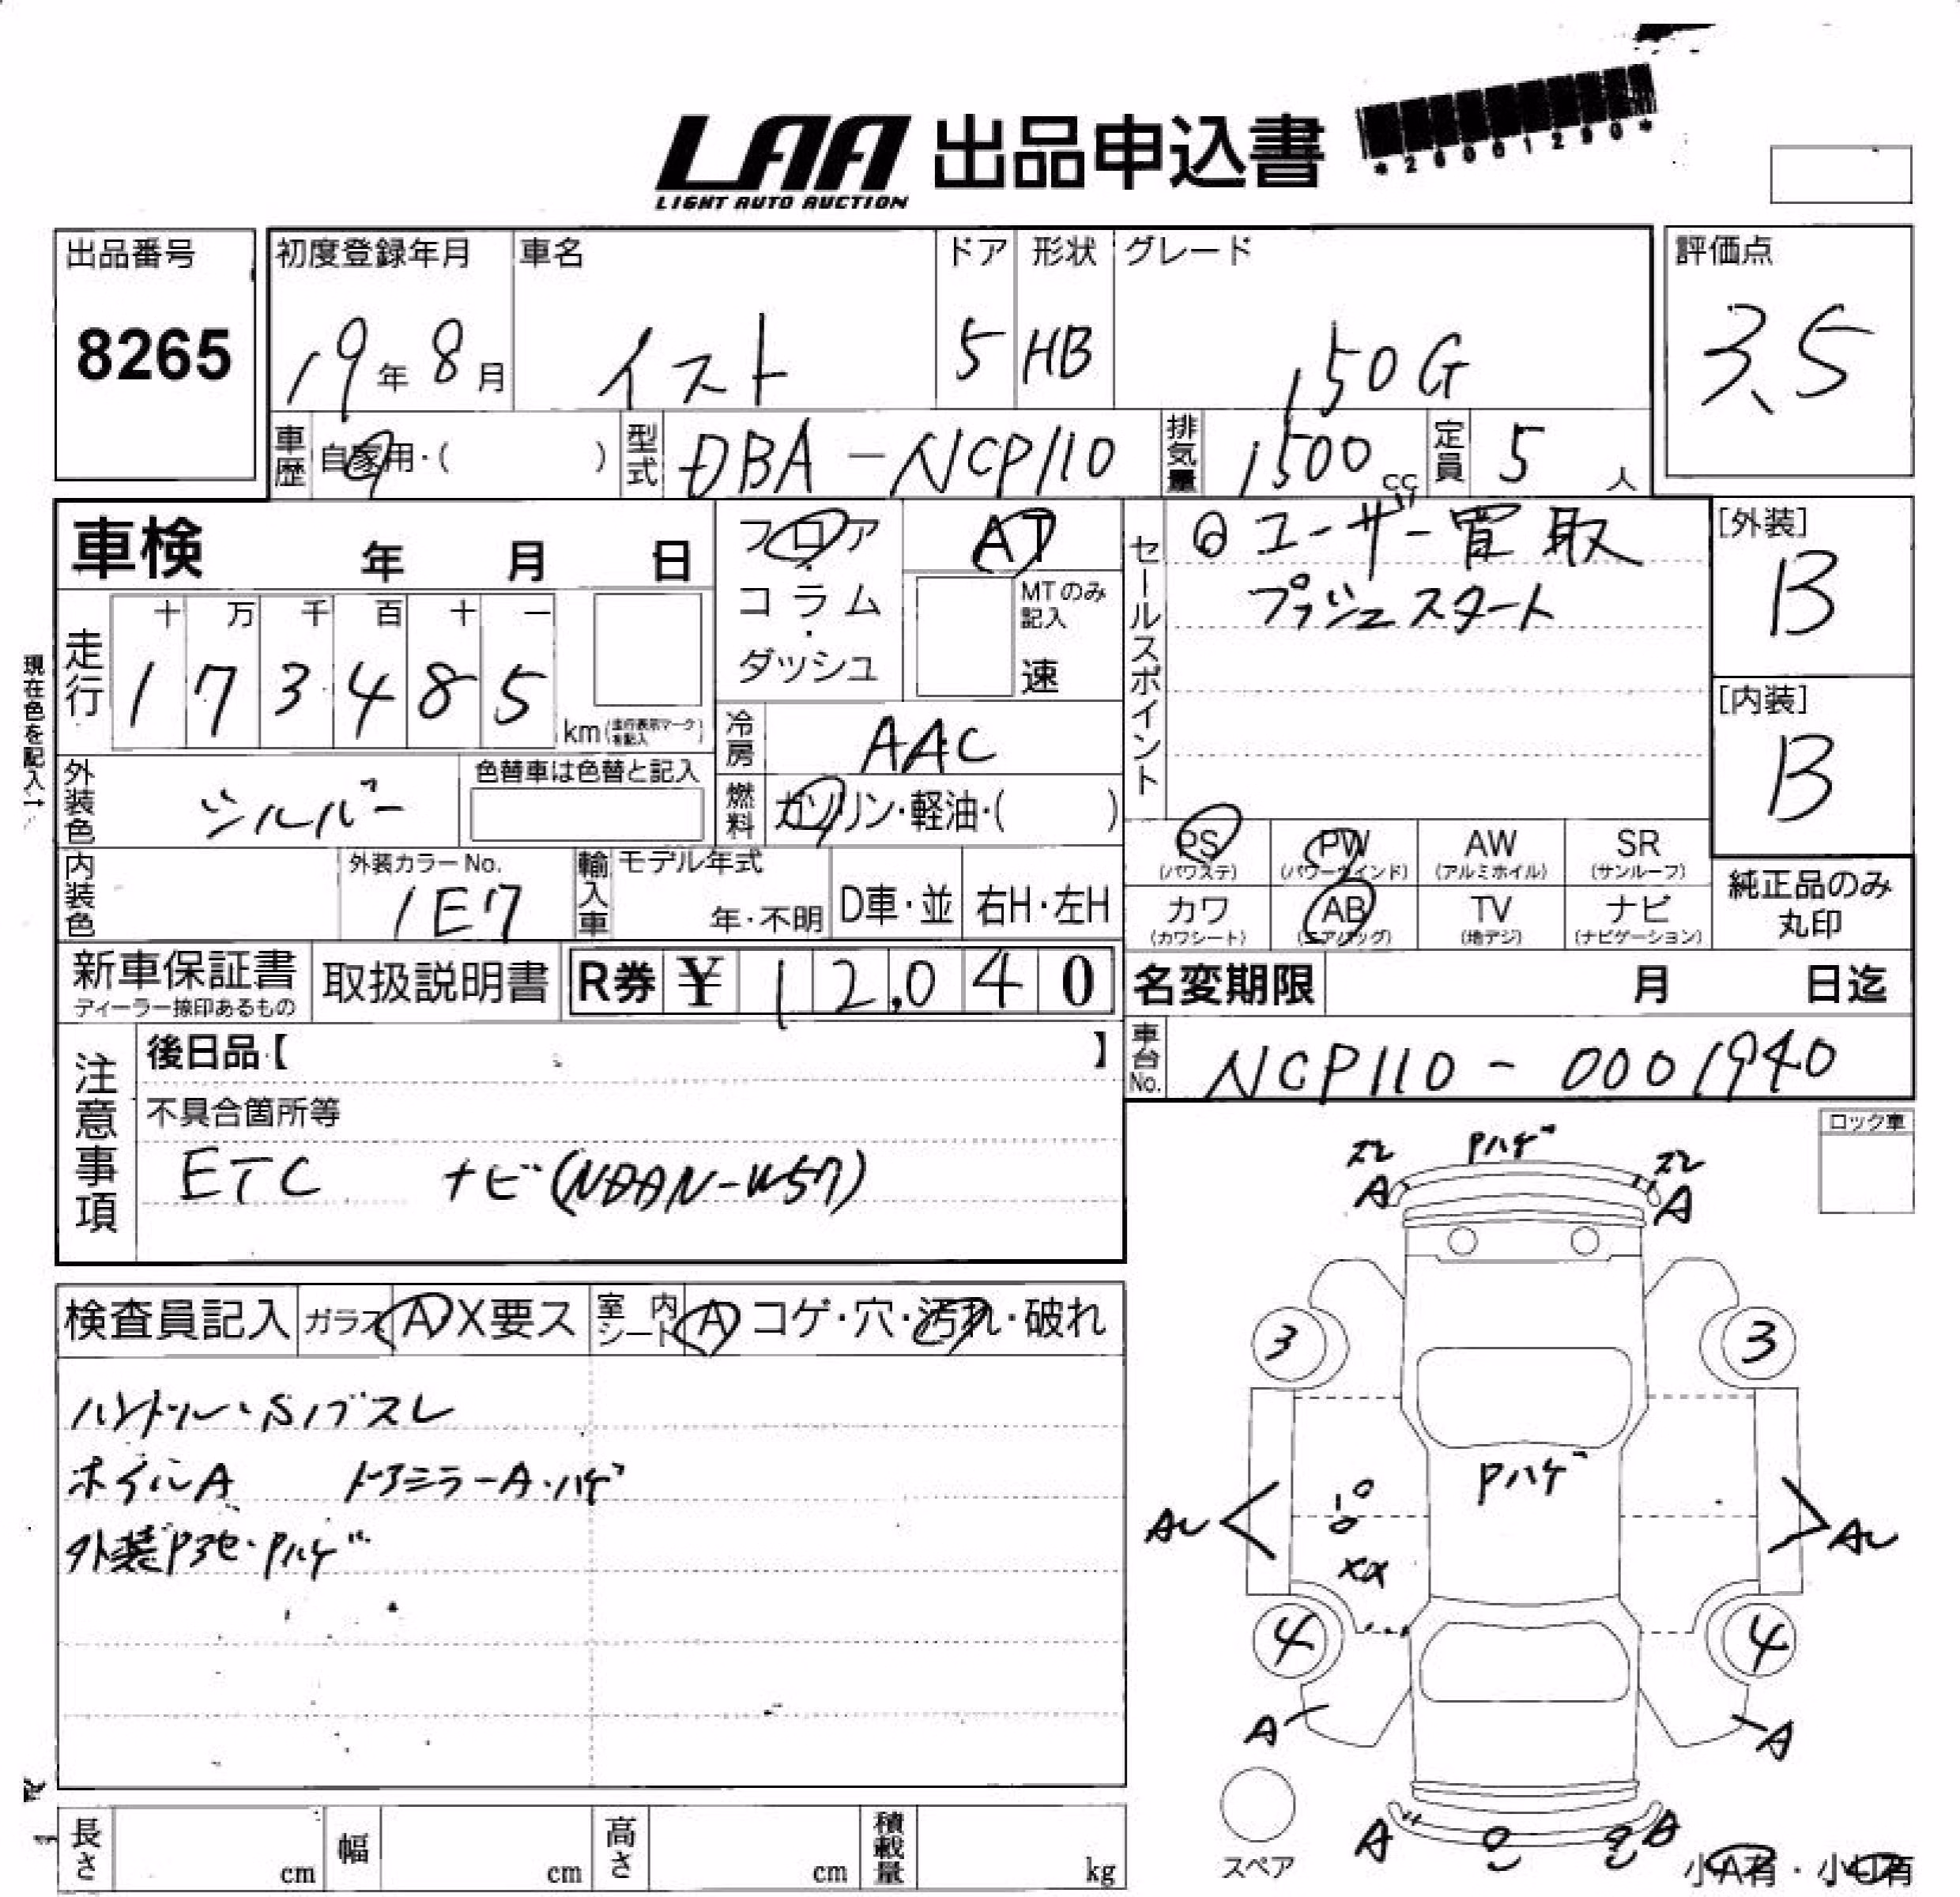 LAA 出品申込書
LIGHT AUTO AUCTION
*20001290*
出品番号
8265
初度登録年月 車名 ドア 形状 グレード
19年8月 イスト 5 HB 150G
評価点
3.5
車歴 自家用・( ) 型式 DBA-NCP110 排気量 1500cc 定員 5人
車検 年 月 日
フロア
コラム
・
ダッシュ
AT
MTのみ
記入
速
セールスポイント
ユーザー買取
プッシュスタート
[外装]
B
[内装]
B
現在色を記入↑
走行
十 万 千 百 十 一
1 7 3 4 8 5
km(走行表示マークを記入)
冷房 AAC
外装色 シルバー
色替車は色替と記入
燃料 ガソリン・軽油・( )
内装色
外装カラーNo.
1E7
輸入車 モデル年式
年・不明 D車・並 右H・左H
PS PW AW SR
(パワステ) (パワーウインド) (アルミホイル) (サンルーフ)
カワ AB TV ナビ
(カワシート) (エアバッグ) (地デジ) (ナビゲーション)
純正品のみ
丸印
新車保証書
ディーラー捺印あるもの
取扱説明書
R券 ¥ 12,040
名変期限 月 日迄
注意事項
後日品【 】
車台No. NCP110-0001940
不具合箇所等
ETC ナビ(NDDN-W57)
ロック車
検査員記入 ガラス A X要ス 室内シート A コゲ・穴・汚れ・破れ
ハンドル・Sノブスレ
ホイルA ドアミラーA・ハゲ
外装Pアセ・Pハゲ
Pハゲ
スレ スレ
A A
3 3
Pハゲ
XX
4 4
A A
A
スペア
小A有・小U有
長さ cm 幅 cm 高さ cm 積載量 kg